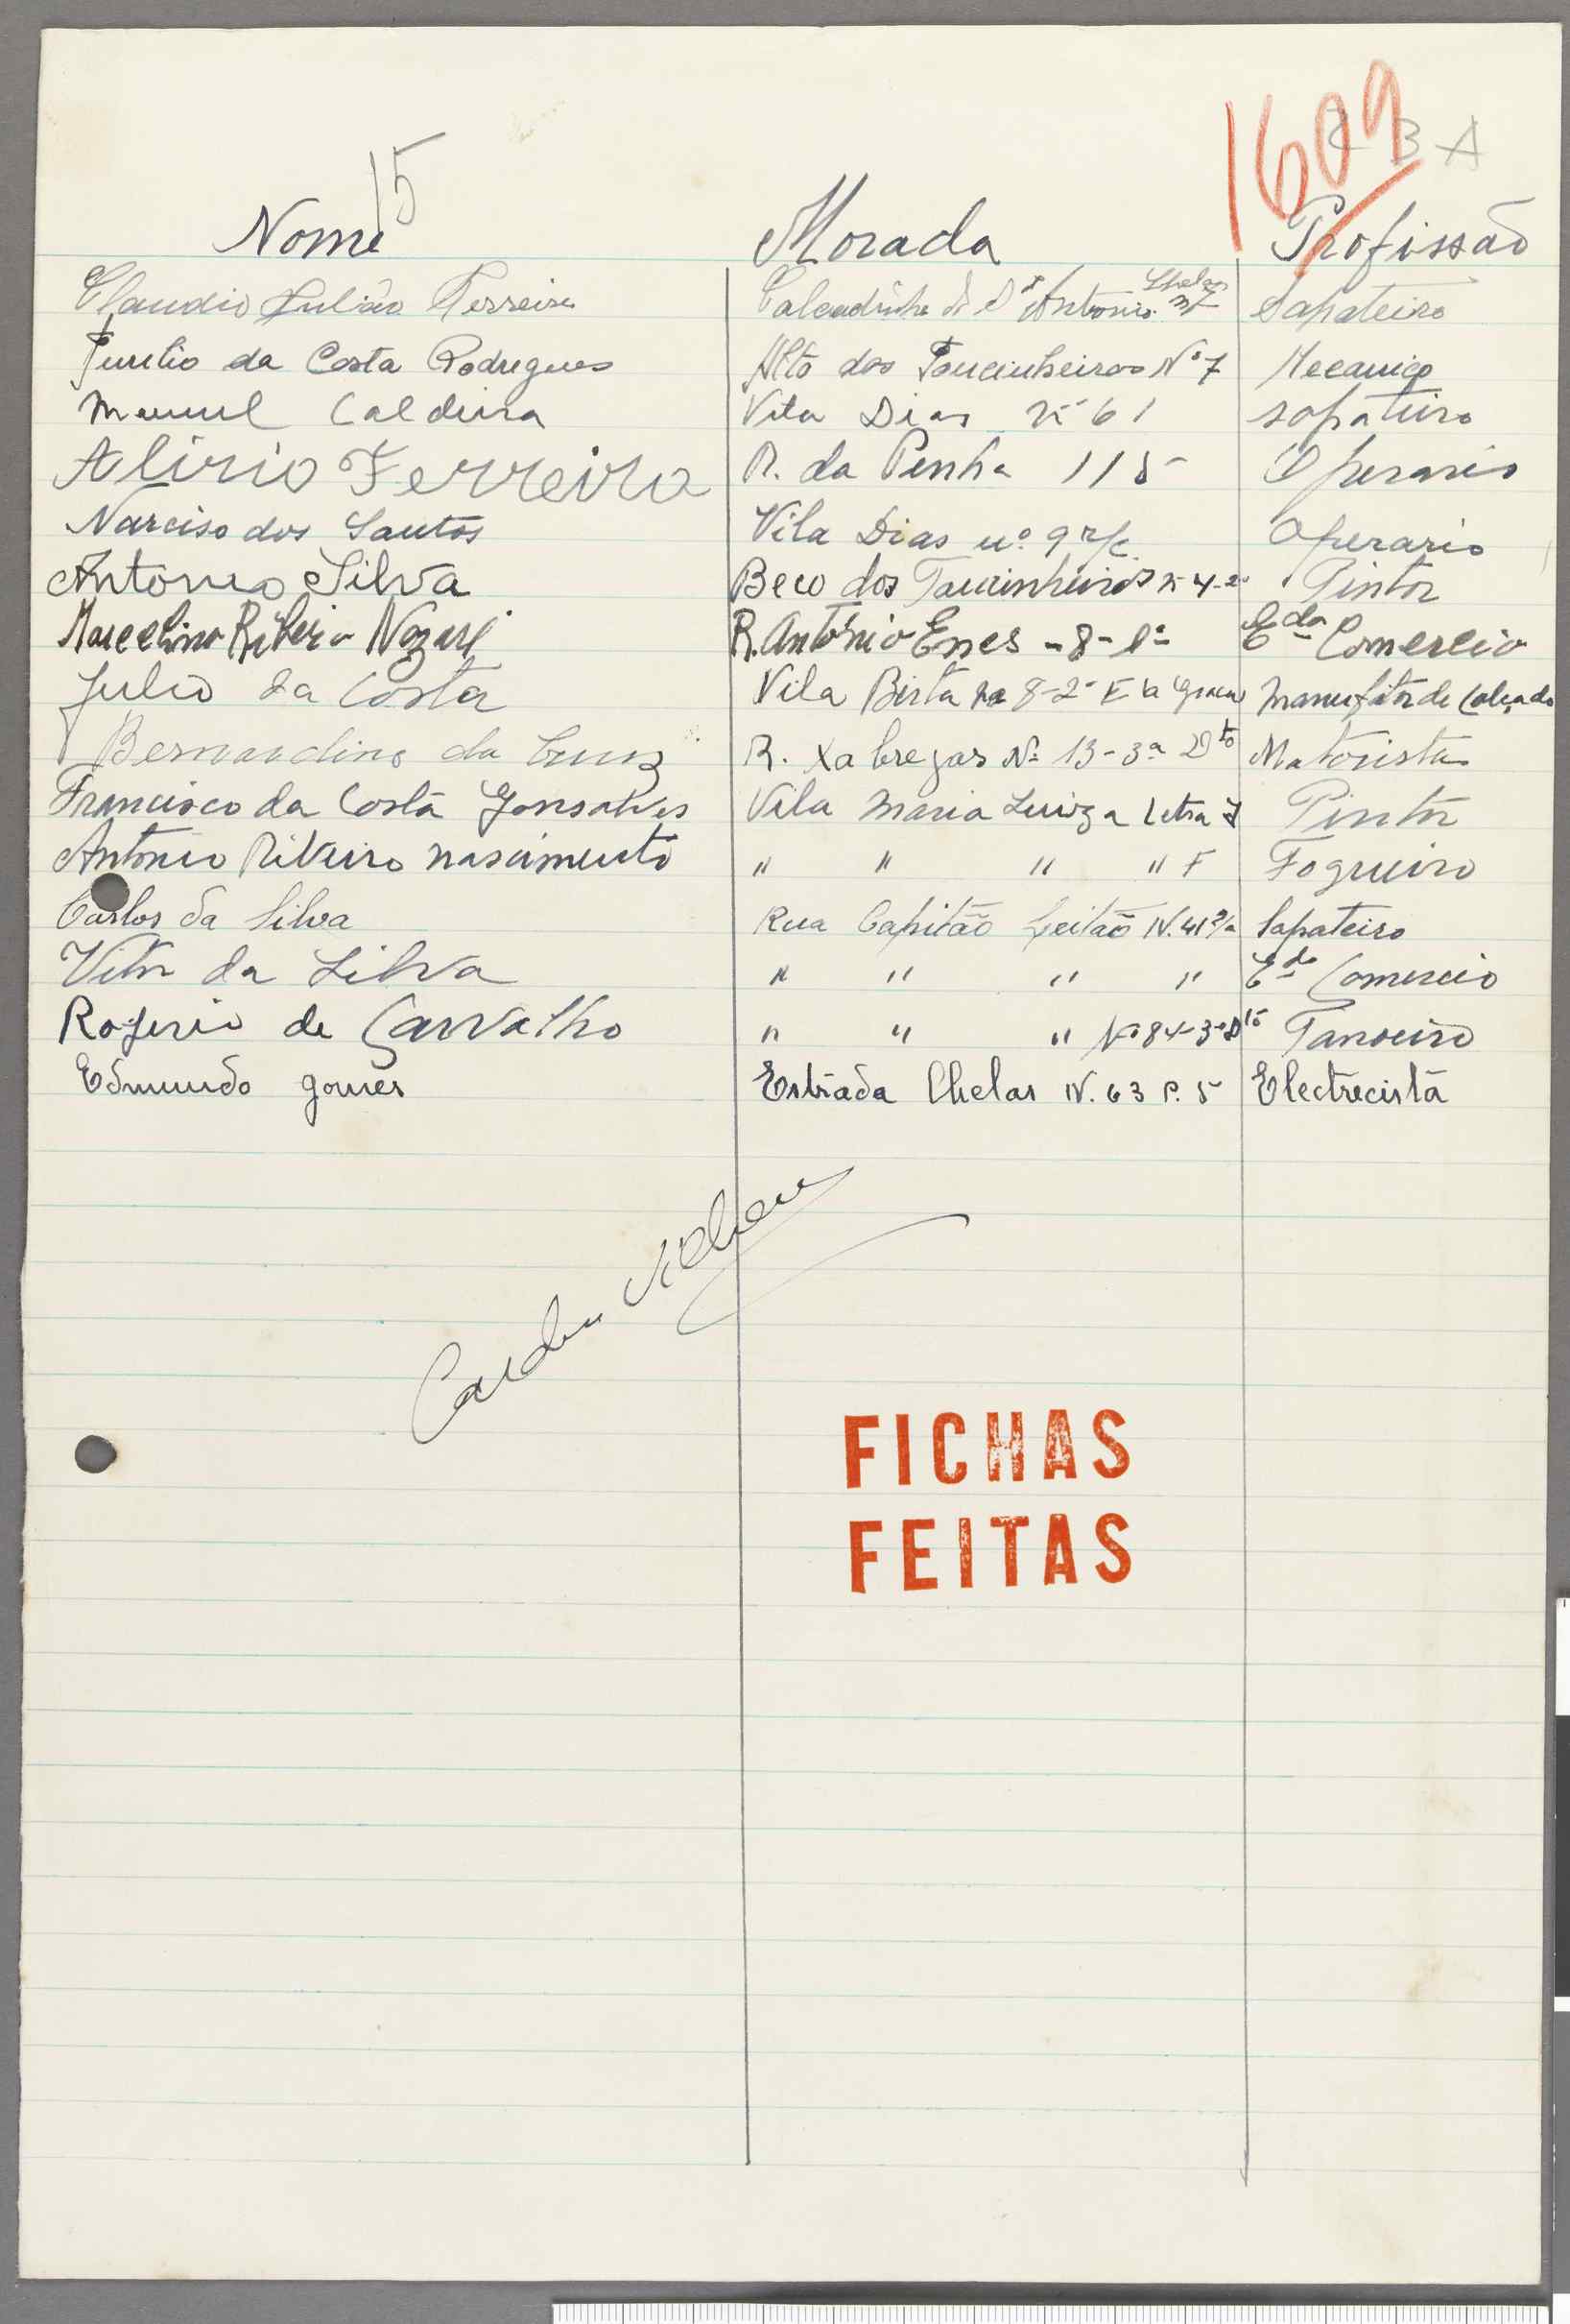 1609
R B A
15
Nome Morada Profissão
Claudio Julião Ferreira Calcadinha de Stº Antonio Chelas nº 7 Sapateiro
da Costa Rodrigues Alto dos Toucinheiros Nº 7 Mecanico
Manuel Caldeira Vila Dias nº 61 sapateiro
Alirio Ferreira R. da Penha 115 Operario
Narciso dos Santos Vila Dias nº 9 r/c. Operario
Antonio Silva Beco dos Toucinheiros nº 4-2º Pintor
Marcelino Ribeiro Nazaré R. António Enes - 8 - 1º E. do Comercio
Julio da Costa Vila Berta nº 8-2º E á Graca Manufator de Calçado
Bernardino da Cruz R. Xabregas Nº 13-3º Dto Motorista
Francisco da Costa Gonsalves Vila Maria Luiza Letra J Pintor
António Ribeiro nascimento " " " " F Fogueiro
Carlos da Silva Rua Capitão Leitão N. 41 Sapateiro
Vitor da Silva " " " " E. do Comercio
Rogerio de Carvalho " " " Nº 84-3º Dto Tanoeiro
Edmundo gomes Estrada Chelas N. 63 P. 5 Electrecista
FICHAS
FEITAS